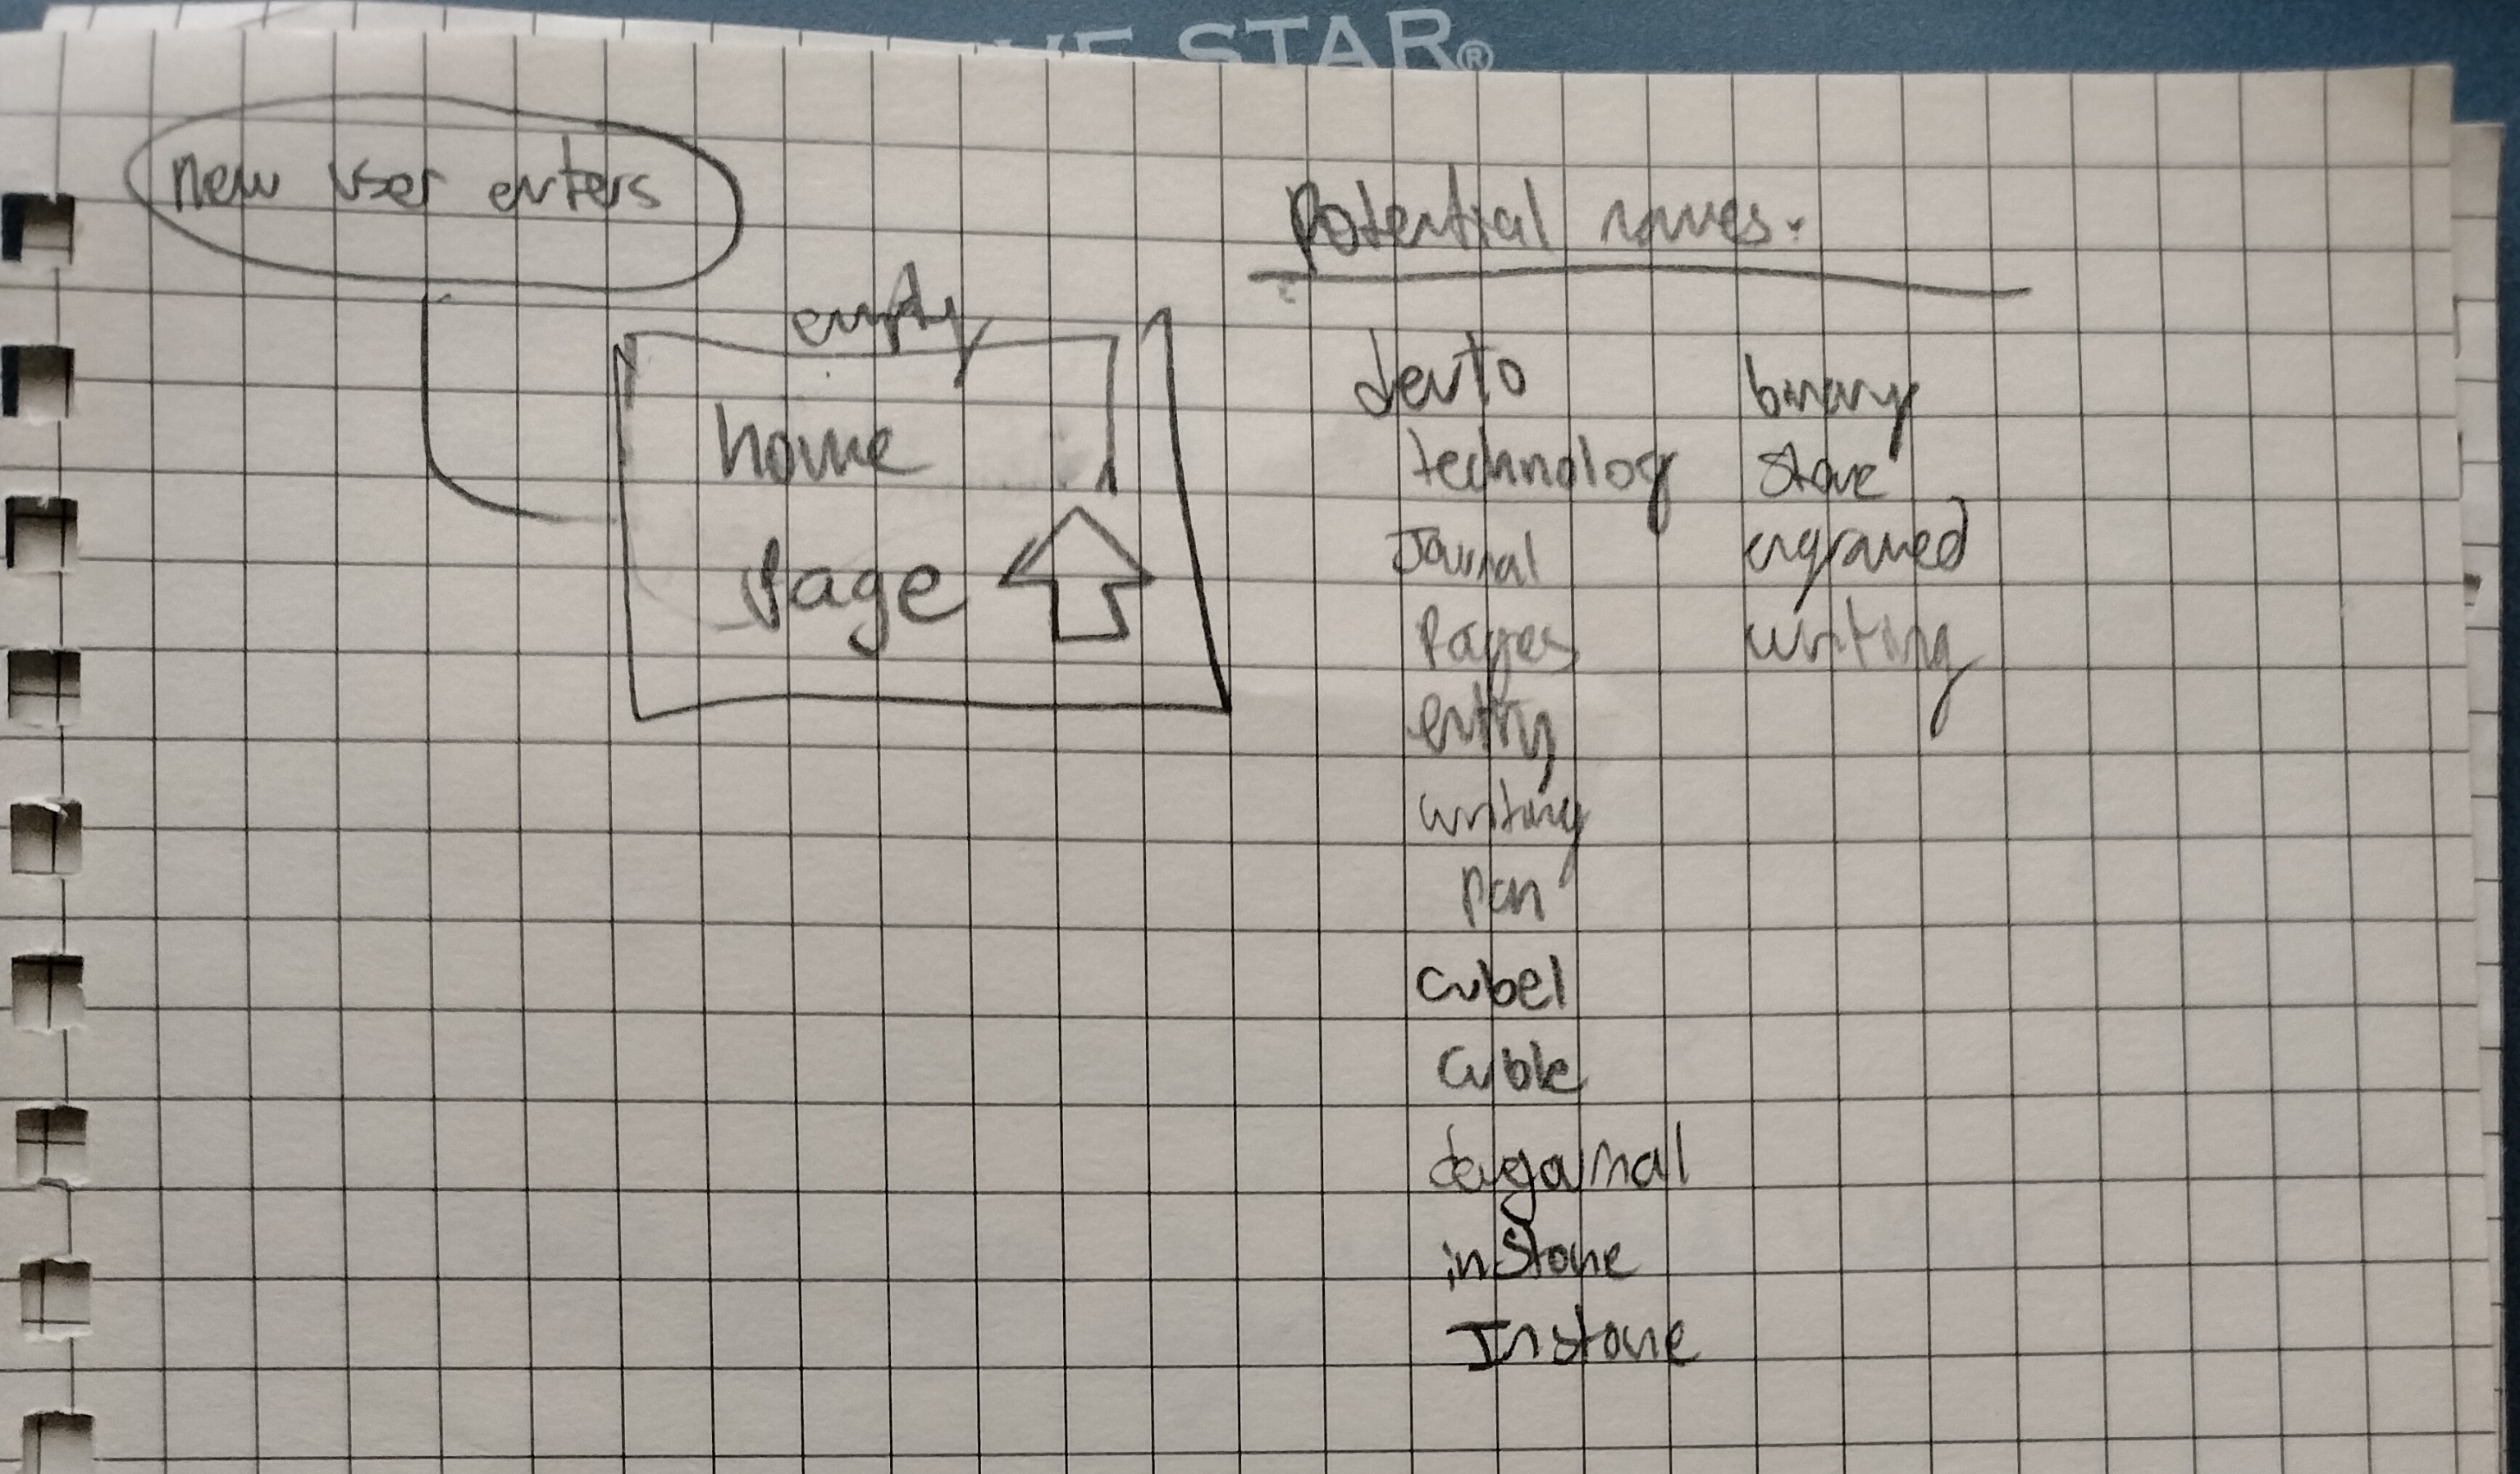 STAR®
new user enters
empty
home
page
Potential names:
devto
technology
Journal
Pages
entry
writing
pen
cubel
cuble
instone
Instone
binary
stone
engraved
writing